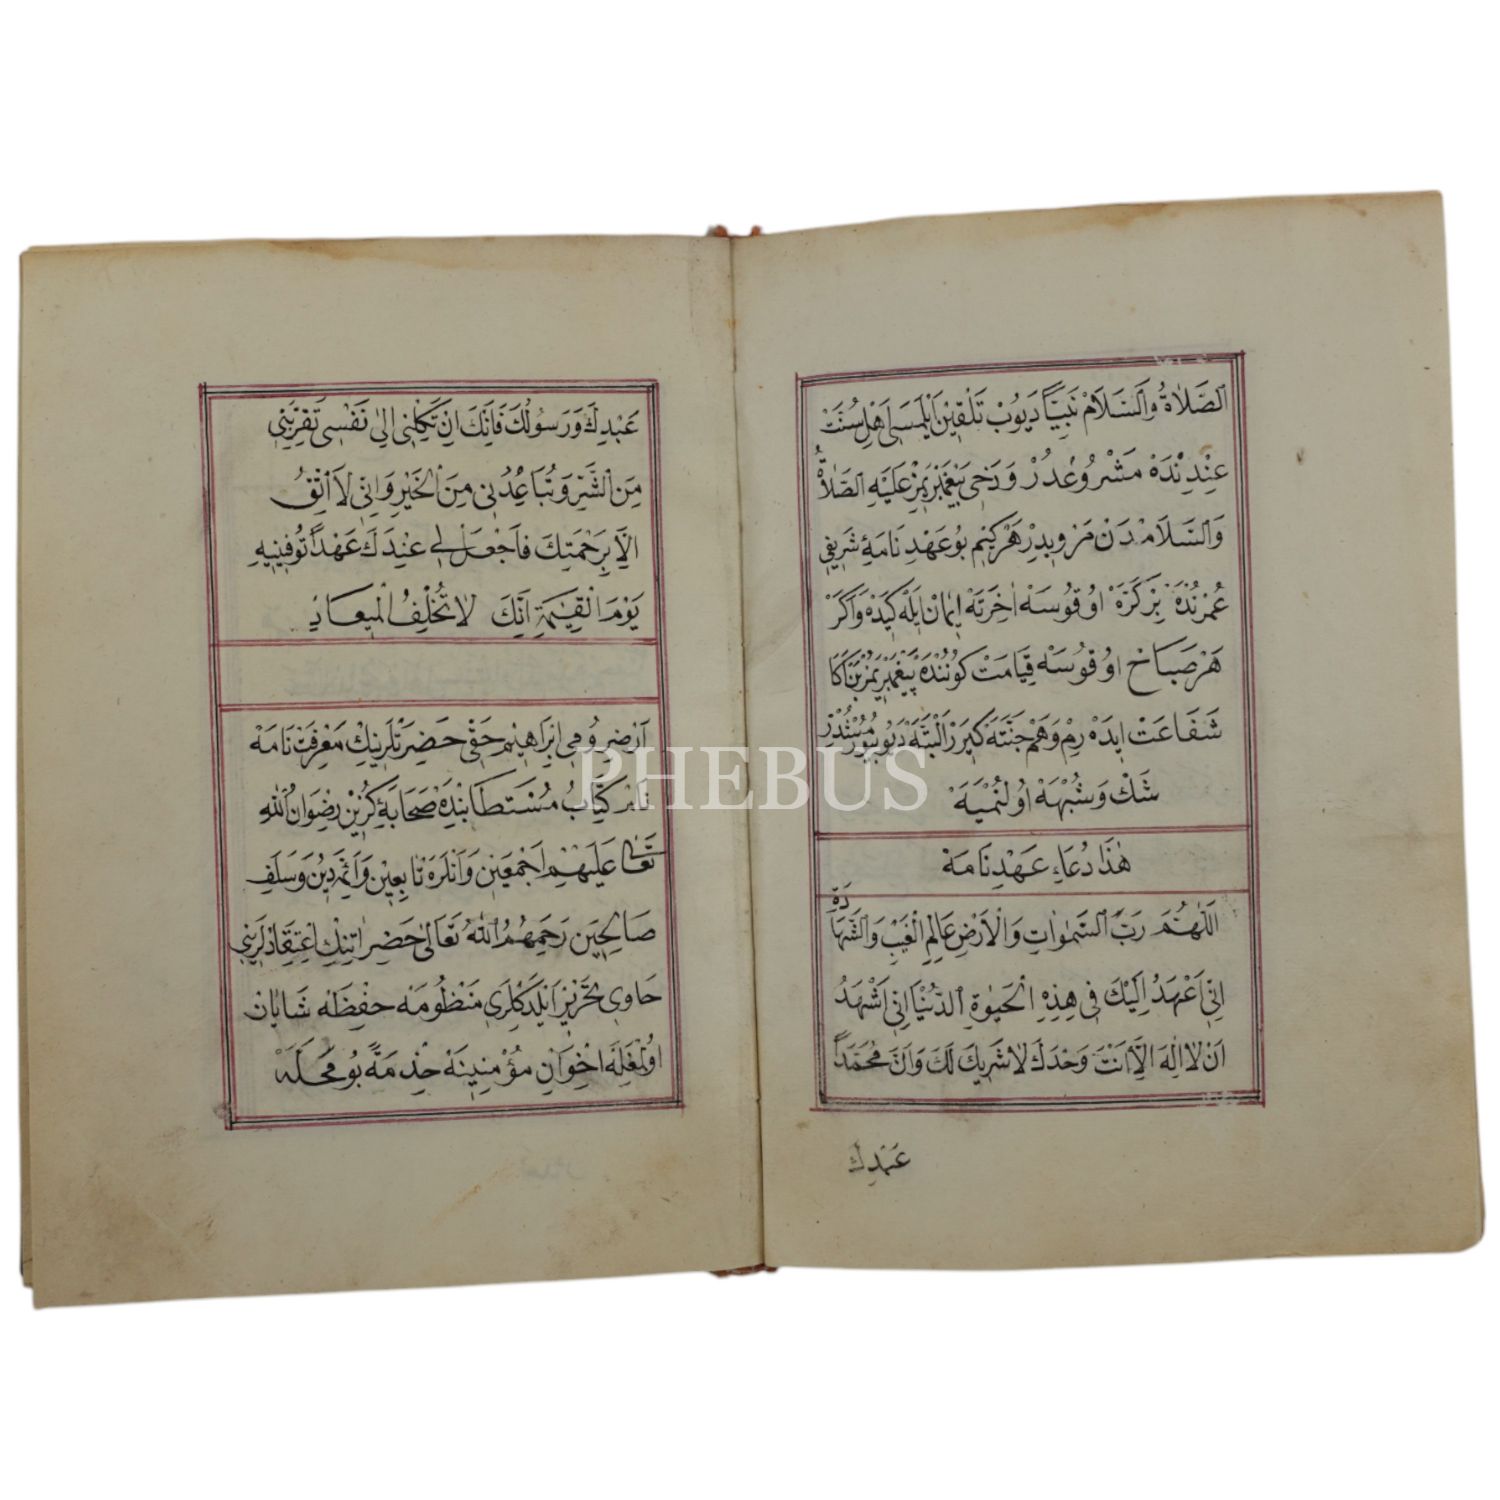 الصَّلَاةُ وَالسَّلَامْ نَبِيًّا دَيُوبْ تَلْقِينْ اَيْلَمَسَى اَهْلِ سُنَّتْ
عِنْدِنْدَهْ مَشْرُوعْدُرْ وَدَخِى پَيْغَمْبَرِيمِزْ عَلَيْهِ الصَّلَاةُ
وَالسَّلَامْدَنْ مَرْوِيدِرْ هَرْ كِيمْ بُو عَهْدِنَامَۀِ شَرِيفِى
عُمْرُنْدَهْ بِرْ كَرَّهْ اوُقُوسَهْ اٰخِرَتَهْ اِيمَانْ اِيلَهْ كِيدَهْ وَاَكَرْ
هَرْ صَبَاحْ اوُقُوسَهْ قِيَامَتْ كُونُنْدَهْ پَيْغَمْبَرِيمِزْ بَنْ اَكَا
شَفَاعَتْ اِيدَهْ رِمْ وَهَمْ جَنَّتَهْ كِيرَرْ اَلْبَتَّهْ دَيُو بُيُورْمُشْدُرْ
شَكْ وَشُبْهَهْ اوُلُنْمَيَهْ
هٰذَا دُعَاءِ عَهْدِنَامَهْ
اَللّٰهُمَّ رَبَّ السَّمٰوَاتِ وَالْاَرْضِ عَالِمِ الْغَيْبِ وَالشَّهَادَةِ
اِنِّى اَعْهَدُ اِلَيْكَ فِى هٰذِهِ الْحَيٰوةِ الدُّنْيَا اِنِّى اَشْهَدُ
اَنْ لَا اِلٰهَ اِلَّا اَنْتَ وَحْدَكَ لَا شَرِيكَ لَكَ وَاَنَّ مُحَمَّدًا
عَبْدِكَ
عَبْدِكَ وَرَسُولُكَ فَاِنَّكَ اِنْ تَكِلْنِى اِلٰى نَفْسِى تُقَرِّبْنِى
مِنَ الشَّرِّ وَتُبَاعِدْنِى مِنَ الْخَيْرِ وَاِنِّى لَا اَثِقُ
اِلَّا بِرَحْمَتِكَ فَاجْعَلْ لِى عِنْدَكَ عَهْدًا تُوَفِّينِيهِ
يَوْمَ الْقِيٰمَةِ اِنَّكَ لَا تُخْلِفُ الْمِيعَادَ
اَرْضِرُومِى اِبْرَاهِيمْ حَقِّى حَضْرَتْلَرِينِكْ مَعْرِفَتْنَامَهْ
نَامْ كِتَابُ مُسْتَطَابِنْدَهْ صَحَابَۀِ كُزِينْ رِضْوَانُ اللّٰهِ
تَعَالٰى عَلَيْهِمْ اَجْمَعِينْ وَاَنْلَرَهْ تَابِعِينْ وَاَئِمَّۀِ دِينْ وَسَلَفِ
صَالِحِينْ رَحِمَهُمُ اللّٰهُ تَعَالٰى حَضَرَاتِنِكْ اِعْتِقَادْلَرِينِى
حَاوِى تَحْرِيرْ اَيْلَدِكْلَرِى مَنْظُومَهْ حِفْظَهْ شَايَانْ
اوُلْمَغْلَهْ اِخْوَانِ مُؤْمِنِينَهْ خِذْمَةً بُو مَحَلَّهْ
PHEBUS